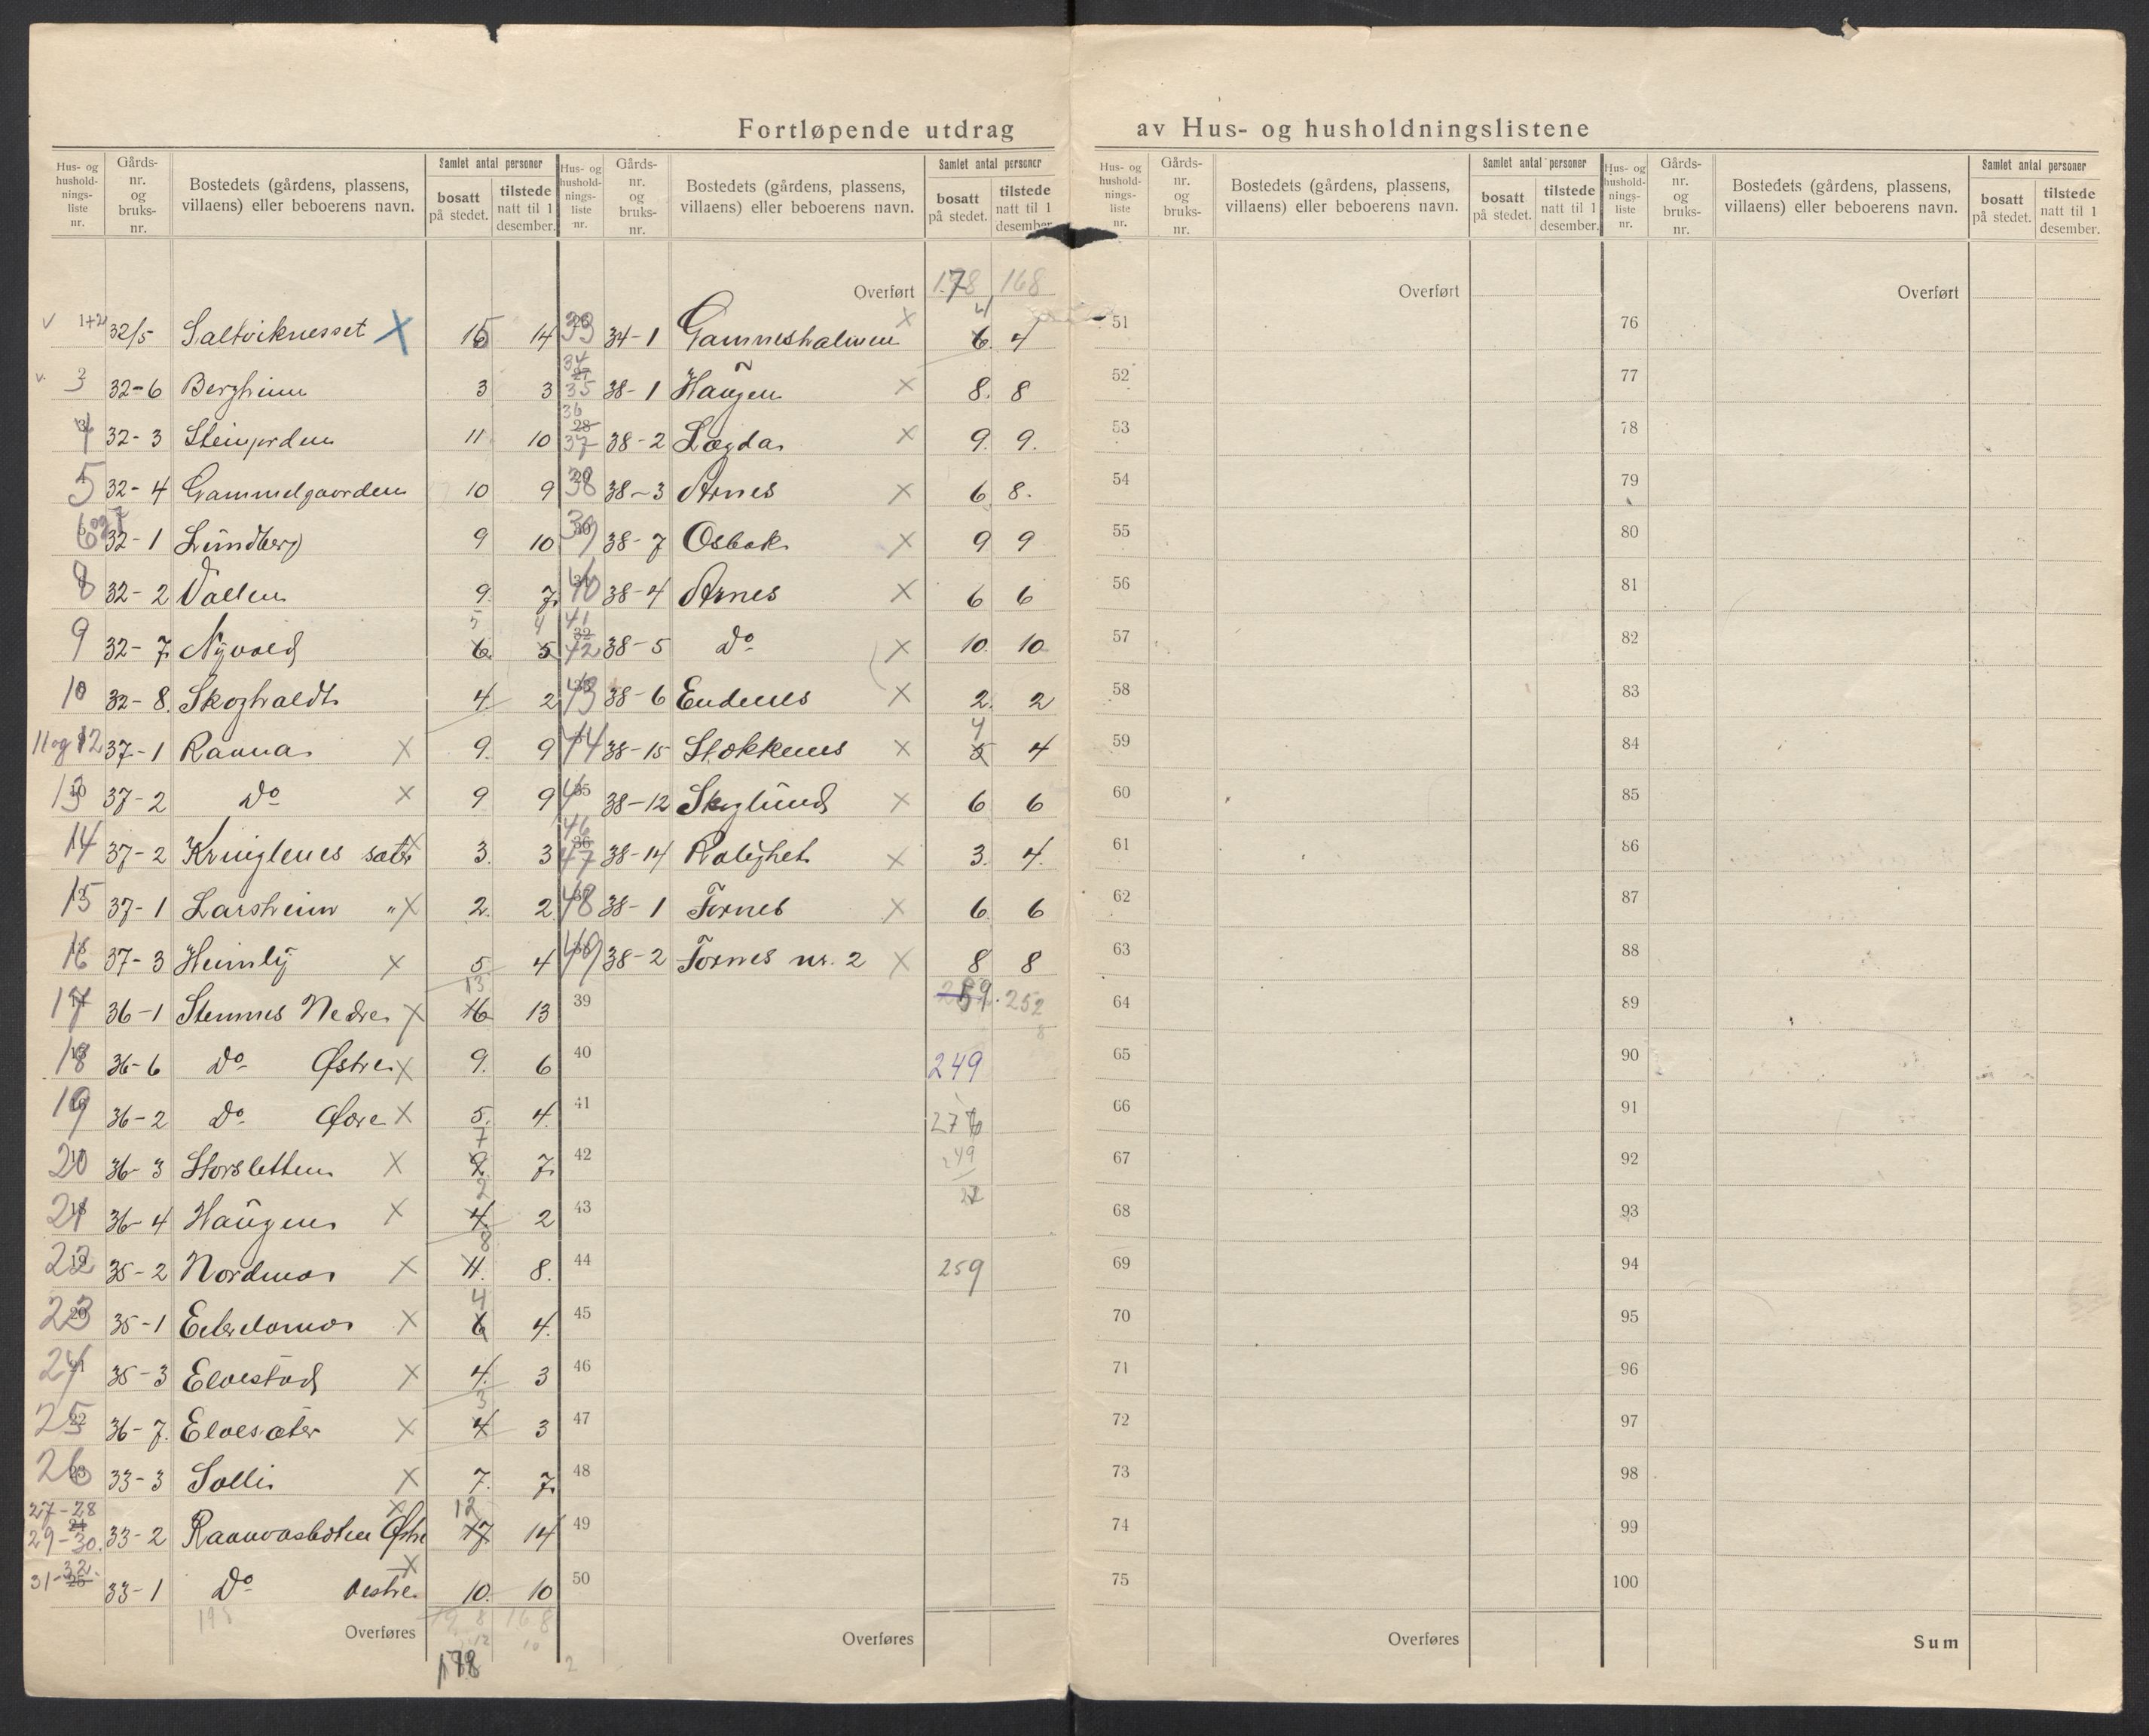 Fortløpende utdrag av Hus- og husholdningslistene
Hus- og hushold-nings-liste nr. Gårds-nr. og bruks-nr. Bostedets (gårdens, plassens, villaens) eller beboerens navn. Samlet antal personer bosatt på stedet. tilstede natt til 1 desember.
1+2 32/5 Saltviknesset X 15 14
3 32-6 Bergheim 3 3
4 32-3 Steinjorden 11 10
5 32-4 Gammelgaarden 10 9
6 og 7 32-1 Lundberg 9 10
8 32-2 Vollen 9. 7.
9 32-7. Nyvold 6 5 5 4
10 32-8. Skoghaldt 4. 2
11 og 12 37-1 Raana X 9. 9
13 37-2 Do X 9 9
14 37-2 Kringlenes sæter X 3. 3
15 37-1 Larsheim " X 2. 2
16 37-3 Heimly X 5 4
17 36-1 Stennes Nedre X 16 13 13
18 36-6 Do Østre X 9. 6
19 36-2 Do Øvre X 5. 4.
20 36-3 Storsletten X 9. 7 7.
21 36-4 Haugen X 4. 2 2
22 35-2 Nordmo X 11. 8 8.
23 35-1 X 6 4 4.
24 35-3 Elvestad X 4. 3
25 36-7. Elvesæter X 4 3 3
26 33-3 Solli X 7. 7.
27-28 29-30. 33-2 Raanvasbotn Østre X 17 12 14
31-32 33-1 Do Vestre X 10. 10
Overføres 168
178
Hus- og hushold-nings-liste nr. Gårds-nr. og bruks-nr. Bostedets (gårdens, plassens, villaens) eller beboerens navn. Samlet antal personer bosatt på stedet. tilstede natt til 1 desember.
Overført 178 168
33 34-1 Gammesholmen X 6. 4 4
34 35 38-1 Haugen X 8. 8
36 37 38-2 Lægda X 9. 9.
38 38-3 Arnes X 6 8.
39 38-7 Osbak X 9 9
40 38-4 Arnes X 6 6
41 42 38-5 Do X 10. 10
43 38-6 Endenes X 2. 2
44 38-15 Stokkenes X 5 4 4
45 38-12 Skoglund X 6 6
46 47 38-14 Rolighet X 3. 4.
48 38-1 Fornes X 6. 6
49 38-2 Fornes nr. 2 X 8 8
39 252
40 249
41
42
43
44 259
45
46
47
48
49
50
Overføres
Hus- og hushold-nings-liste nr. Gårds-nr. og bruks-nr. Bostedets (gårdens, plassens, villaens) eller beboerens navn. Samlet antal personer bosatt på stedet. tilstede natt til 1 desember.
Overført
51
52
53
54
55
56
57
58
59
60
61
62
63
64
65
66
67
68
69
70
71
72
73
74
75
Overføres
Hus- og hushold-nings-liste nr. Gårds-nr. og bruks-nr. Bostedets (gårdens, plassens, villaens) eller beboerens navn. Samlet antal personer bosatt på stedet. tilstede natt til 1 desember.
Overført
76
77
78
79
80
81
82
83
84
85
86
87
88
89
90
91
92
93
94
95
96
97
98
99
100
Sum